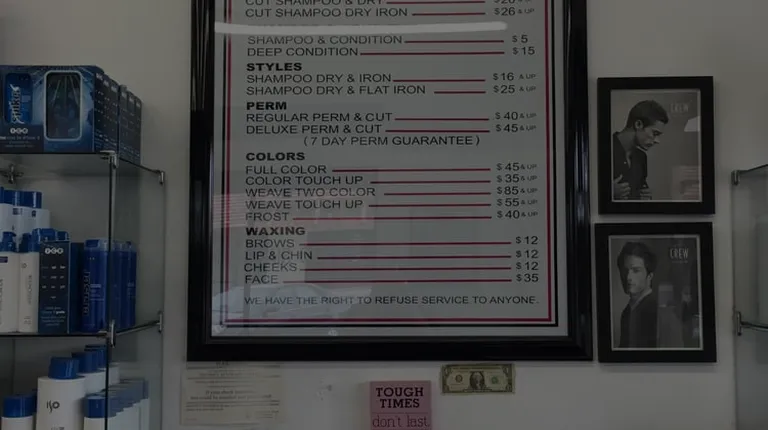 CUT SHAMPOO & DRY $20 & UP
CUT SHAMPOO DRY IRON $26 & UP
SHAMPOO & CONDITION $5
DEEP CONDITION $15
STYLES
SHAMPOO DRY & IRON $16 & UP
SHAMPOO DRY & FLAT IRON $25 & UP
PERM
REGULAR PERM & CUT $40 & UP
DELUXE PERM & CUT $45 & UP
(7 DAY PERM GUARANTEE)
COLORS
FULL COLOR $45 & UP
COLOR TOUCH UP $35 & UP
WEAVE TWO COLOR $85 & UP
WEAVE TOUCH UP $55 & UP
FROST $40 & UP
WAXING
BROWS $12
LIP & CHIN $12
CHEEKS $12
FACE $35
WE HAVE THE RIGHT TO REFUSE SERVICE TO ANYONE.
CREW
CREW
TOUGH
TIMES
don't last.
ISO